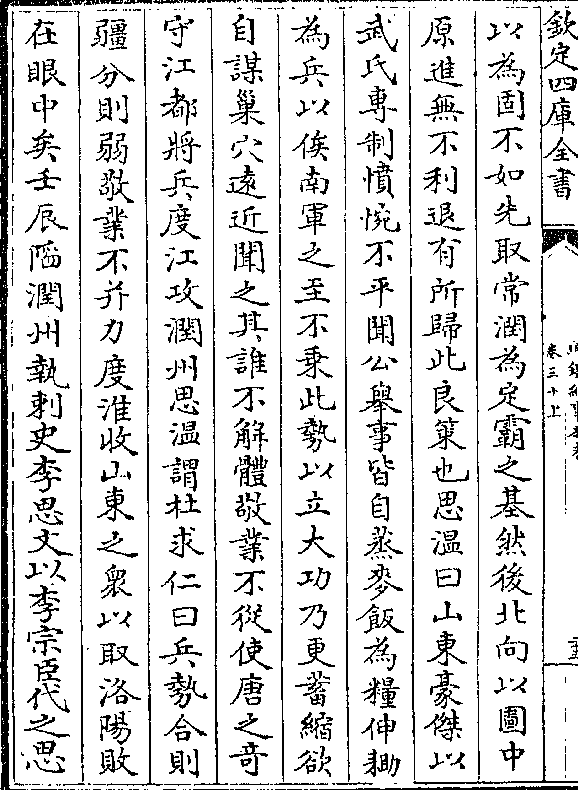 欽定四庫全書
卷三十上
以為固不如先取常潤為定霸之基然後北向以圖中
原進無不利退有所歸此良策也思溫曰山東豪傑以
武氏專制憤惋不平聞公舉事皆自蒸麥飯為糧伸鋤
為兵以俟南軍之至不乘此勢以立大功乃更蓄縮欲
自謀巢穴遠近聞之其誰不解體敬業不從使唐之奇
守江都將兵度江攻潤州思溫謂杜求仁曰兵勢合則
疆分則弱敬業不并力度淮收山東之衆以取洛陽敗
在眼中矣壬辰陷潤州執刺史李思文以李宗臣代之思